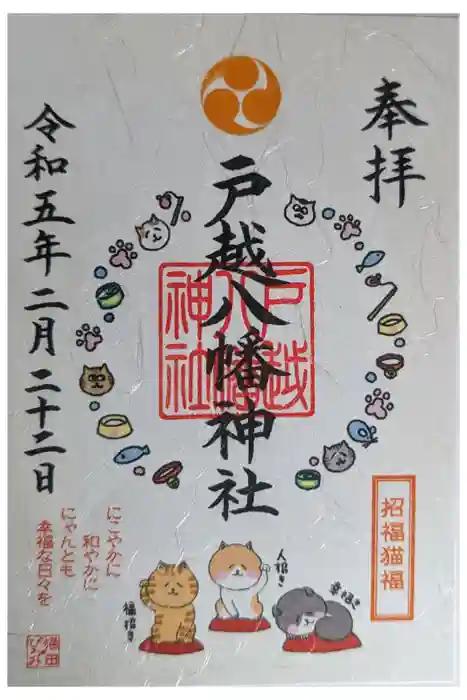 奉拝
戸越八幡神社
戸越
八幡
神社
令和五年二月二十二日
招福猫福
人招き
幸招き
福招き
にこやかに
和やかに
にゃんとも
幸福な日々を